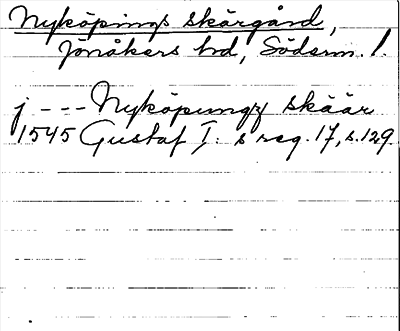 Nyköpings skärgård,
Jönåkers hd, Söderm. l.
j --- Nyköpungz skäär
1545 Gustaf I:s reg. 17, s. 129.